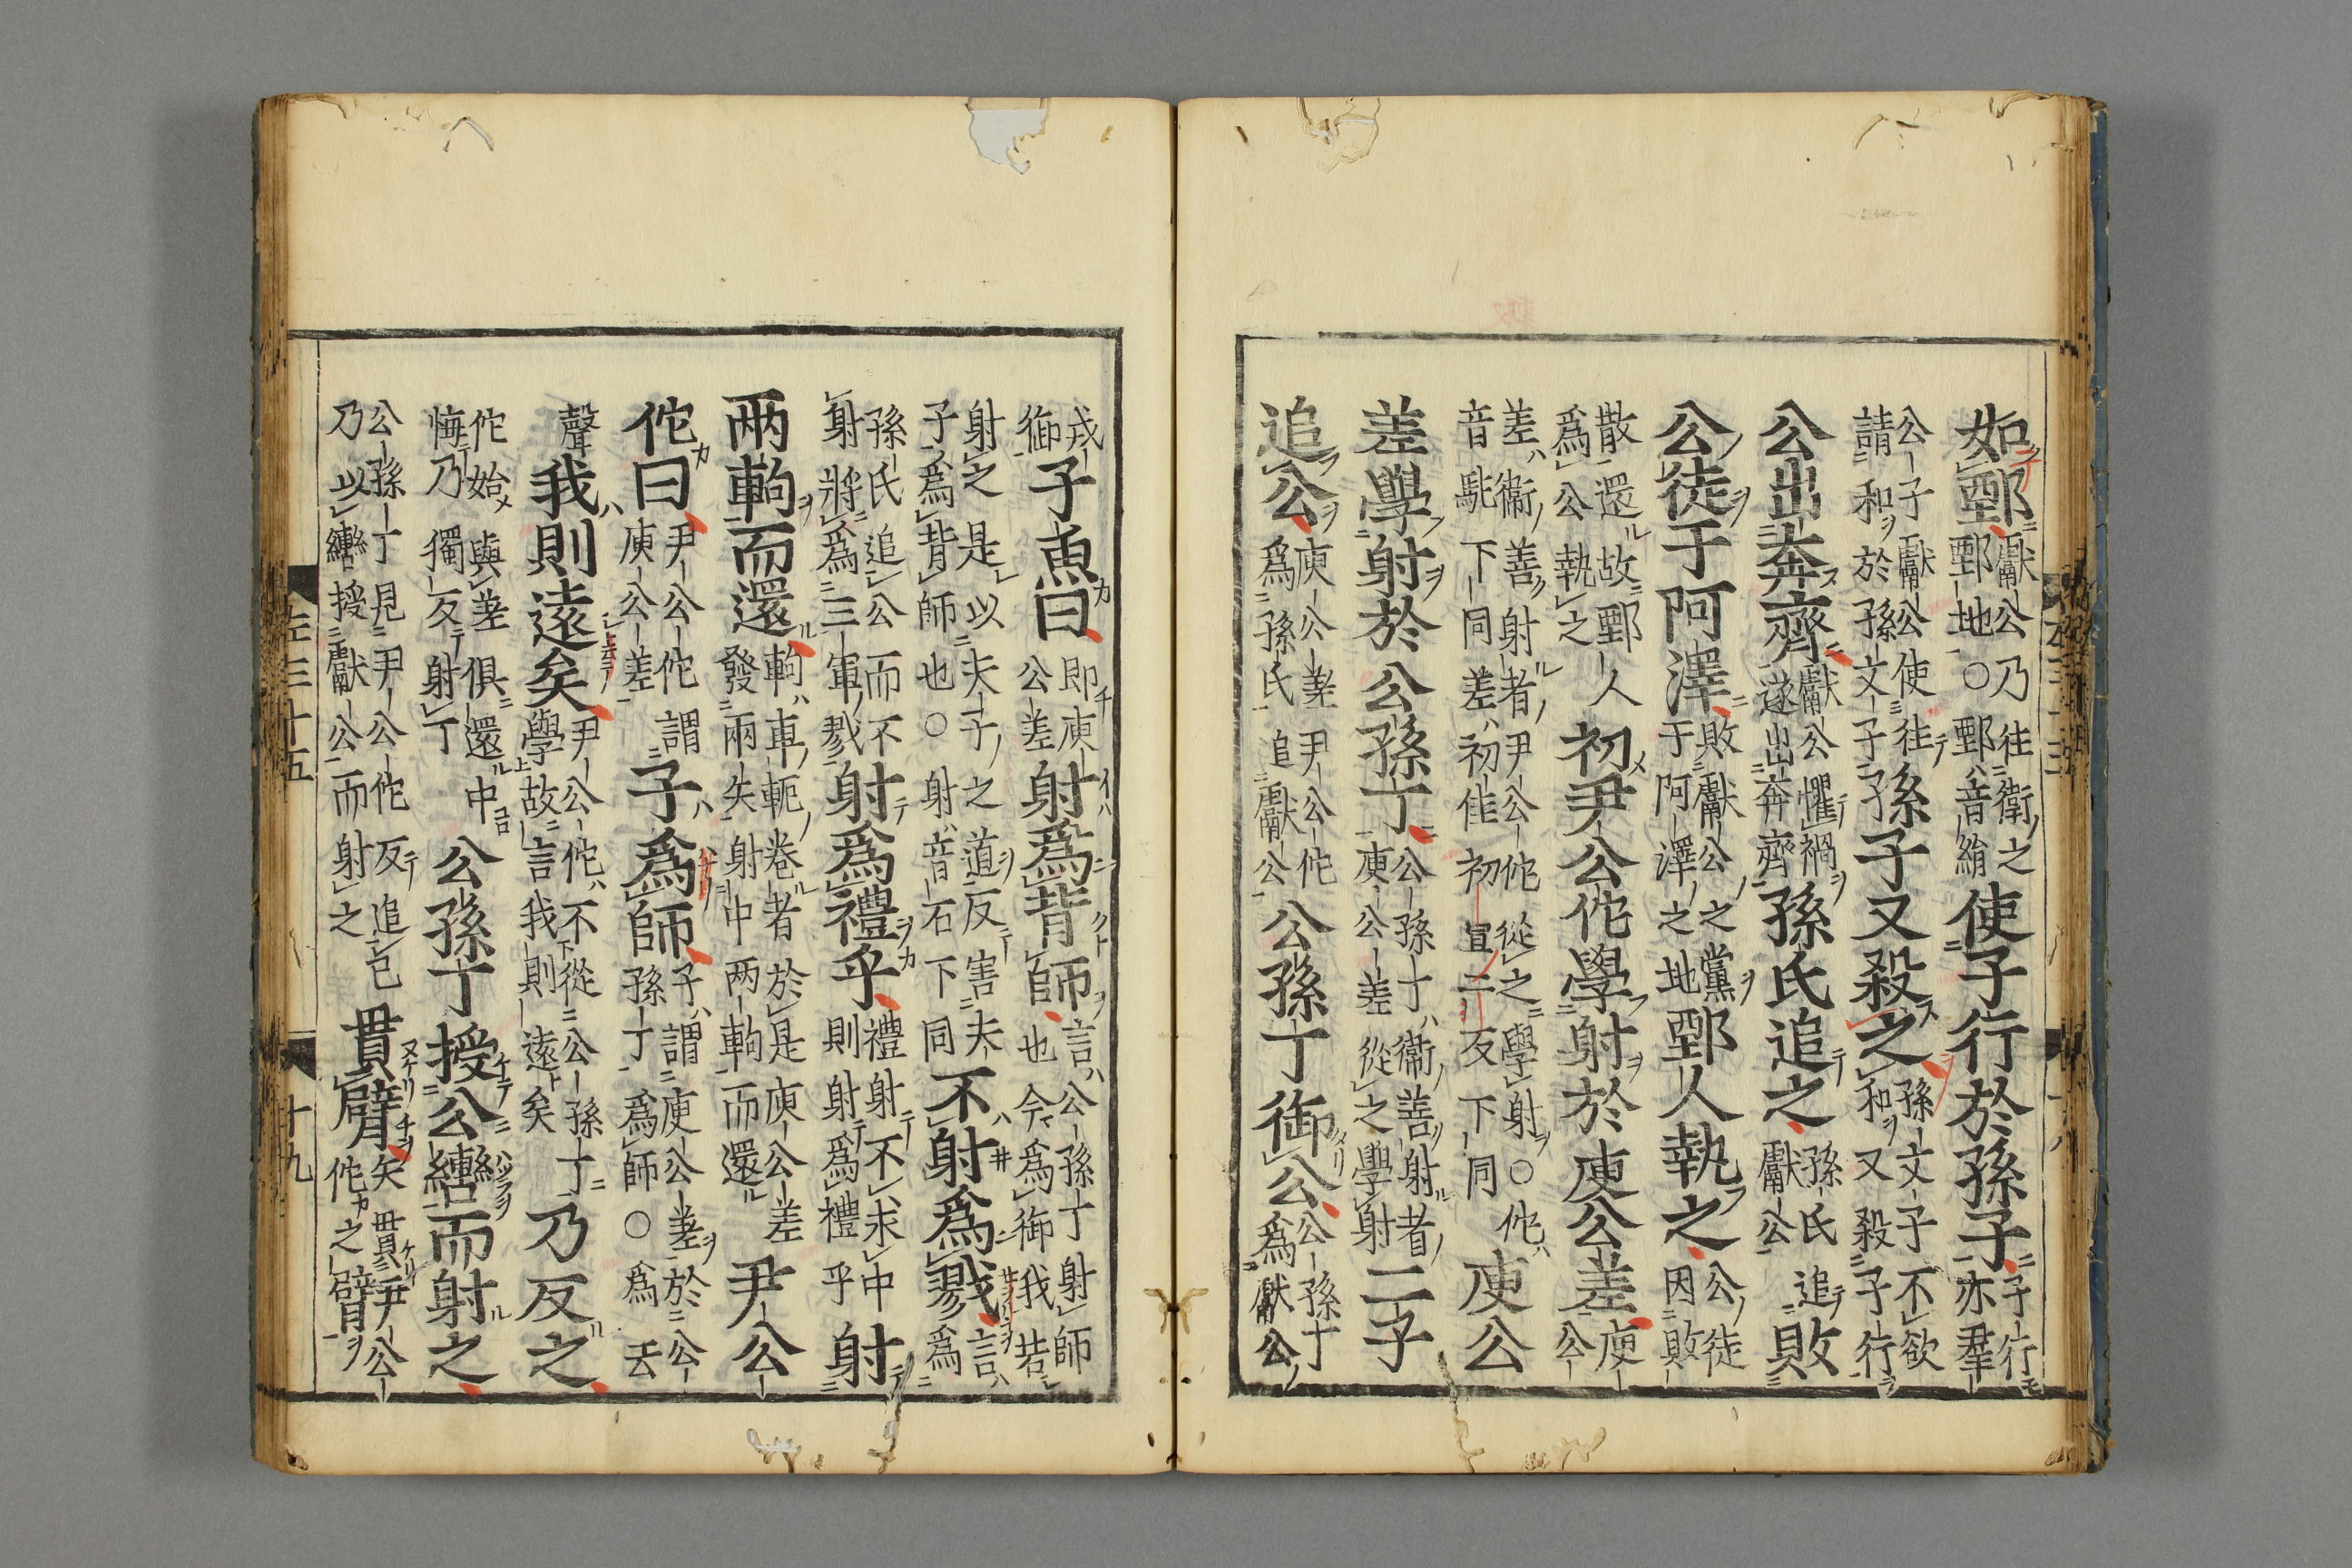 如鄄獻公乃徃衛之鄄地○鄄音絹使子行於孫子子行亦羣
公子獻公使徃請和於孫文子孫子又殺之孫文子不欲和又殺子行
公出奔齊獻公懼禍遂出奔齊孫氏追之孫氏追獻公敗
公徒于阿澤敗獻公之黨于阿澤之地鄄人執之公徒因敗
散還故鄄人爲公執之初尹公佗學射於庾公差庾公
差衛善射者尹公佗從之學射○佗音駝下同差初佳初宜二反下同庾公
差學射於公孫丁公孫丁衛善射者庾公差從之學射二子
追公庾公差尹公佗爲孫氏追獻公公孫丁御公公孫丁爲獻公
戎御子魚曰即庾公差射爲背師言公孫丁射師也今爲御我若
射之是以夫子之道反害夫子爲背師也○射音石下同不射爲戮言爲
孫氏追公而不射將爲三軍戮射爲禮乎禮射不求中則射爲禮乎射
兩軥而還軥車軛卷者於是庾公差發兩矢射中两軥而還尹公
佗曰尹公佗謂庾公差子爲師子謂庾公差於公孫丁爲師○爲去
聲我則遠矣尹公佗不從公孫丁學故言我則遠矣乃反之
佗始與差俱還中悔乃獨反射丁公孫丁授公轡而射之
公孫丁見尹公佗反追已乃以轡授獻公而射之貫臂矢貫尹公佗之臂
左三十五 十九